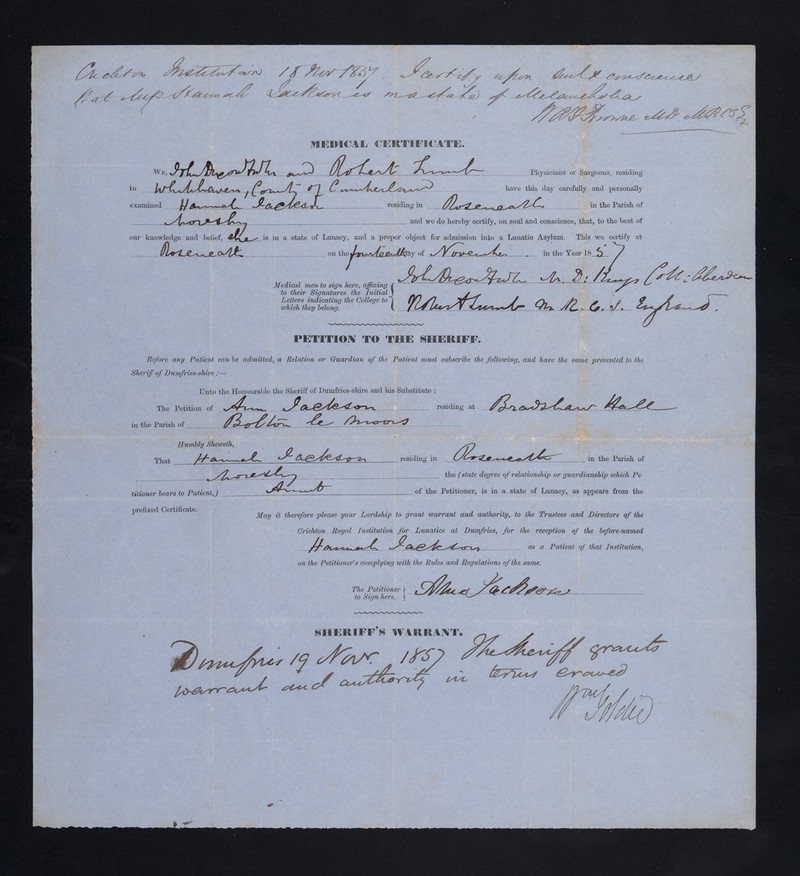 Crichton Institution 18 Nov 1857. I certify upon soul & conscience
that Miss Hannah Jackson is in a state of Melancholia
W A F Browne MD MRCSE
MEDICAL CERTIFICATE.
WE, John Dixon and Robert Lumb Physicians or Surgeons, residing
in Whitehaven, County of Cumberland have this day carefully and personally
examined Hannah Jackson residing in Roseneath in the Parish of
Moresby and we do hereby certify, on soul and conscience, that, to the best of
our knowledge and belief, she is in a state of Lunacy, and a proper object for admission into a Lunatic Asylum. This we certify at
Roseneath on the fourteenth day of November in the Year 1857
Medical men to sign here, affixing
to their Signatures the Initial
Letters indicating the College to
which they belong.
John Dixon M. D: Kings Coll: Aberdeen
Robert Lumb M. R. C. S. England.
PETITION TO THE SHERIFF.
Before any Patient can be admitted, a Relation or Guardian of the Patient must subscribe the following, and have the same presented to the
Sheriff of Dumfries-shire :—
Unto the Honourable the Sheriff of Dumfries-shire and his Substitute :
The Petition of Ann Jackson residing at Bradshaw Hall
in the Parish of Bolton le Moors
Humbly Sheweth,
That Hannah Jackson residing in Roseneath in the Parish of
Moresby the (state degree of relationship or guardianship which Pe-
titioner bears to Patient,) Aunt of the Petitioner, is in a state of Lunacy, as appears from the
prefixed Certificate.
May it therefore please your Lordship to grant warrant and authority, to the Trustees and Directors of the
Crichton Royal Institution for Lunatics at Dumfries, for the reception of the before-named
Hannah Jackson as a Patient of that Institution,
on the Petitioner's complying with the Rules and Regulations of the same.
The Petitioner
to Sign here.
Ann Jackson
SHERIFF'S WARRANT.
Dumfries 19 Novr. 1857 The Sheriff grants
warrant and authority in terms craved
Goldie